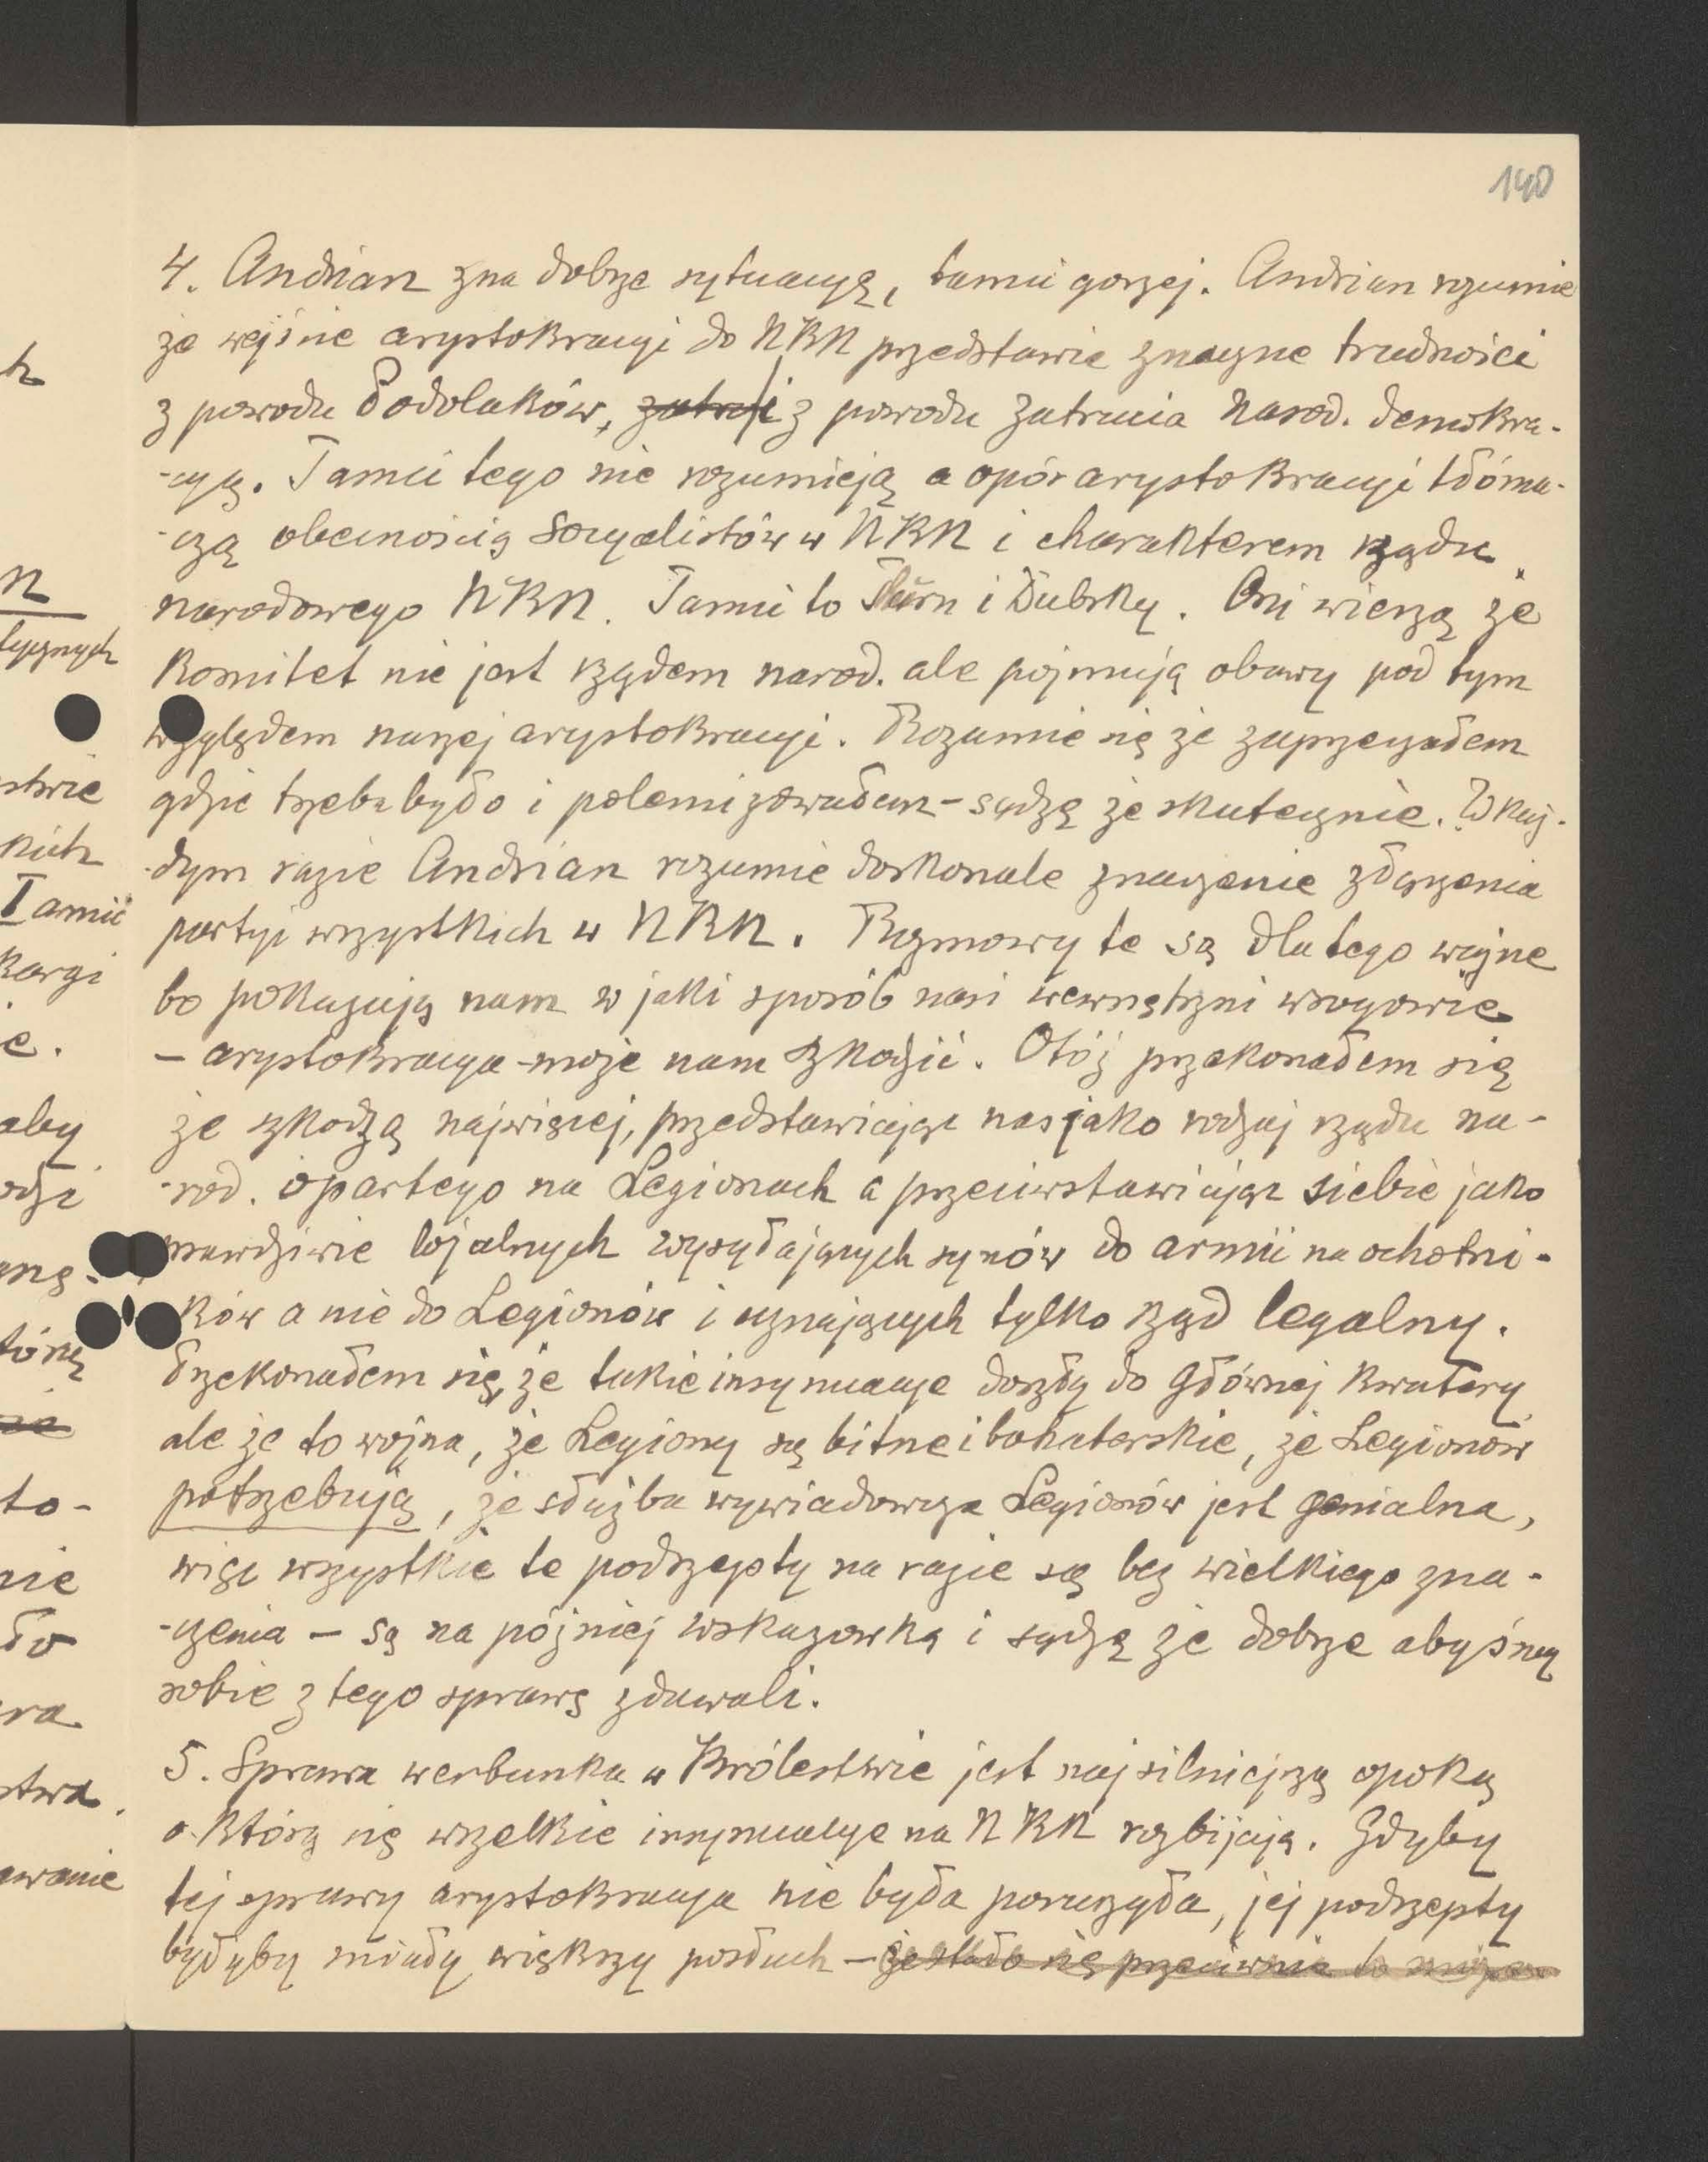 140
4. Andrian zna dobrze sytuacyę, tamci gorzej. Andrian rozumie
że wejśnie arystokracyi do NKN przedstawia znaczne trudności
z powodu Podolaków, i z powodu zatrucia narod. demokra-
-cyą. Tamci tego nie rozumieją a opór arystokracyi tłóma-
-czą obecnością socyalistów w NKN i charakterem rządu
narodowego NKN. Tamci to Thurn i Dubsky. Oni wierzą że
Komitet nie jest rządem narod. ale pojmują obawy pod tym
względem naszej arystokracyi. Rozumie się że zaprzeczałem
gdzie trzeba było i polemizowałem - sądzę że skutecznie. W każ-
-dym razie Andrian rozumie doskonale znaczenie złączenia
partyi wszystkich w NKN. Rozmowy te są dlatego ważne
bo pokazują nam w jaki sposób nasi wewnętrzni wrogowie
- arystokracya - może nam szkodzić. Otóż przekonałem się
że szkodzą najwięcej, przedstawiając nas jako rodzaj rządu na-
-rod. opartego na Legionach a przeciwstawiając siebie jako
prawdziwie lojalnych wysyłających synów do armii na ochotni-
-ków a nie do Legionów i uznających tylko rząd legalny.
Przekonałem się, że takie insynuacye doszły do głównej kwatery
ale że to wojna, że Legiony są bitne i bohaterskie, że Legionów
potrzebują, że służba wywiadowcza Legionów jest genialna,
więc wszystkie te podszepty na razie są bez wielkiego zna-
-czenia - są na później wskazówką i sądzę że dobrze abyśmy
sobie z tego sprawę zdawali.
5. Sprawa werbunku w Królestwie jest najsilniejszą opoką
o którą się wszelkie insynuacye na NKN rozbijają. Gdyby
tej sprawy arystokracya nie była poruszyła, jej podszepty
byłyby miały większy posłuch - że stało się przeciwnie to
h
n
tycznych
stwie
kich
Tamci
kargi
e.
aby
odzi
tórą
to-
nie
ło
ra
stwa.
awanie